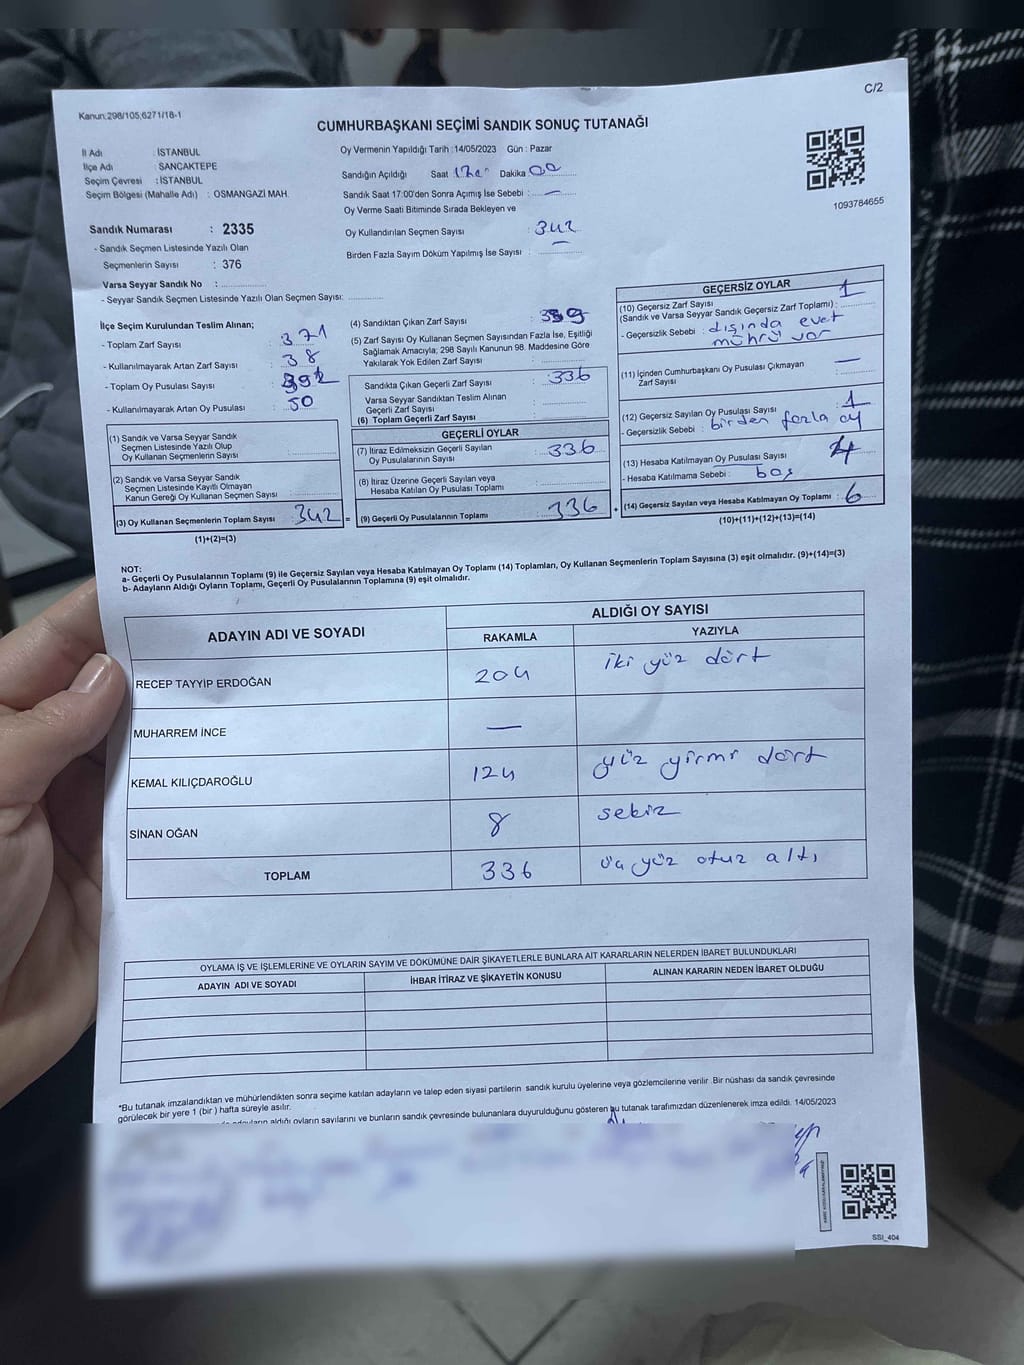 Kanun:298/105,6271/18-1
C/2
CUMHURBAŞKANI SEÇİMİ SANDIK SONUÇ TUTANAĞI
İl Adı : İSTANBUL
İlçe Adı : SANCAKTEPE
Seçim Çevresi : İSTANBUL
Seçim Bölgesi (Mahalle Adı) : OSMANGAZİ MAH.
Oy Vermenin Yapıldığı Tarih :14/05/2023 Gün : Pazar
Sandığın Açıldığı Saat Dakika 00
Sandık Saat 17:00'den Sonra Açımış İse Sebebi : —
Oy Verme Saati Bitiminde Sırada Bekleyen ve
Oy Kullandırılan Seçmen Sayısı : 342
Birden Fazla Sayım Döküm Yapılmış İse Sayısı : —
1093784655
Sandık Numarası : 2335
- Sandık Seçmen Listesinde Yazılı Olan
Seçmenlerin Sayısı : 376
Varsa Seyyar Sandık No :
- Seyyar Sandık Seçmen Listesinde Yazılı Olan Seçmen Sayısı:
İlçe Seçim Kurulundan Teslim Alınan;
- Toplam Zarf Sayısı : 371
- Kullanılmayarak Artan Zarf Sayısı : 38
- Toplam Oy Pusulası Sayısı : 392
- Kullanılmayarak Artan Oy Pusulası : 50
(1) Sandık ve Varsa Seyyar Sandık
Seçmen Listesinde Yazılı Olup
Oy Kullanan Seçmenlerin Sayısı :
(2) Sandık ve Varsa Seyyar Sandık
Seçmen Listesinde Kayıtlı Olmayan
Kanun Gereği Oy Kullanan Seçmen Sayısı :
(3) Oy Kullanan Seçmenlerin Toplam Sayısı : 342 =
(1)+(2)=(3)
(4) Sandıktan Çıkan Zarf Sayısı :
(5) Zarf Sayısı Oy Kullanan Seçmen Sayısından Fazla İse, Eşitliği
Sağlamak Amacıyla; 298 Sayılı Kanunun 98. Maddesine Göre
Yakılarak Yok Edilen Zarf Sayısı :
Sandıkta Çıkan Geçerli Zarf Sayısı : 336
Varsa Seyyar Sandıktan Teslim Alınan
Geçerli Zarf Sayısı :
(6) Toplam Geçerli Zarf Sayısı :
GEÇERLİ OYLAR
(7) İtiraz Edilmeksizin Geçerli Sayılan
Oy Pusulalarının Sayısı : 336
(8) İtiraz Üzerine Geçerli Sayılan veya
Hesaba Katılan Oy Pusulası Toplamı :
(9) Geçerli Oy Pusulalarının Toplamı : 336 +
GEÇERSİZ OYLAR
(10) Geçersiz Zarf Sayısı 1
(Sandık ve Varsa Seyyar Sandık Geçersiz Zarf Toplamı) :
- Geçersizlik Sebebi : dışında evet
mührü var
(11) İçinden Cumhurbaşkanı Oy Pusulası Çıkmayan —
Zarf Sayısı :
(12) Geçersiz Sayılan Oy Pusulası Sayısı : 1
- Geçersizlik Sebebi : birden fazla oy
(13) Hesaba Katılmayan Oy Pusulası Sayısı : 4
- Hesaba Katılmama Sebebi : boş
(14) Geçersiz Sayılan veya Hesaba Katılmayan Oy Toplamı : 6
(10)+(11)+(12)+(13)=(14)
NOT:
a- Geçerli Oy Pusulalarının Toplamı (9) ile Geçersiz Sayılan veya Hesaba Katılmayan Oy Toplamı (14) Toplamları, Oy Kullanan Seçmenlerin Toplam Sayısına (3) eşit olmalıdır. (9)+(14)=(3)
b- Adayların Aldığı Oyların Toplamı, Geçerli Oy Pusulalarının Toplamına (9) eşit olmalıdır.
ADAYIN ADI VE SOYADI
ALDIĞI OY SAYISI
RAKAMLA YAZIYLA
RECEP TAYYİP ERDOĞAN 204 iki yüz dört
MUHARREM İNCE —
KEMAL KILIÇDAROĞLU 124 yüz yirmi dört
SİNAN OĞAN 8 sekiz
TOPLAM 336 üç yüz otuz altı
OYLAMA İŞ VE İŞLEMLERİNE VE OYLARIN SAYIM VE DÖKÜMÜNE DAİR ŞİKAYETLERLE BUNLARA AİT KARARLARIN NELERDEN İBARET BULUNDUKLARI
ADAYIN ADI VE SOYADI İHBAR İTİRAZ VE ŞİKAYETİN KONUSU ALINAN KARARIN NEDEN İBARET OLDUĞU
*Bu tutanak imzalandıktan ve mühürlendikten sonra seçime katılan adayların ve talep eden siyasi partilerin sandık kurulu üyelerine veya gözlemcilerine verilir .Bir nüshası da sandık çevresinde
görülecek bir yere 1 (bir ) hafta süreyle asılır.
aldığı oyların sayılarını ve bunların sandık çevresinde bulunanlara duyurulduğunu gösteren bu tutanak tarafımızdan düzenlenerek imza edildi. 14/05/2023
SSI_404